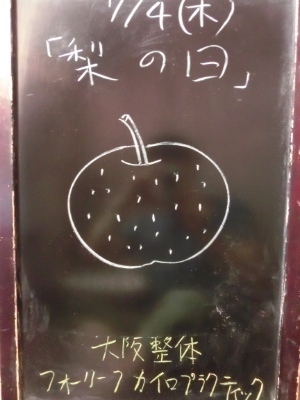 7/4(木)
「梨の日」
大阪整体
フォーリーフカイロプラクティック